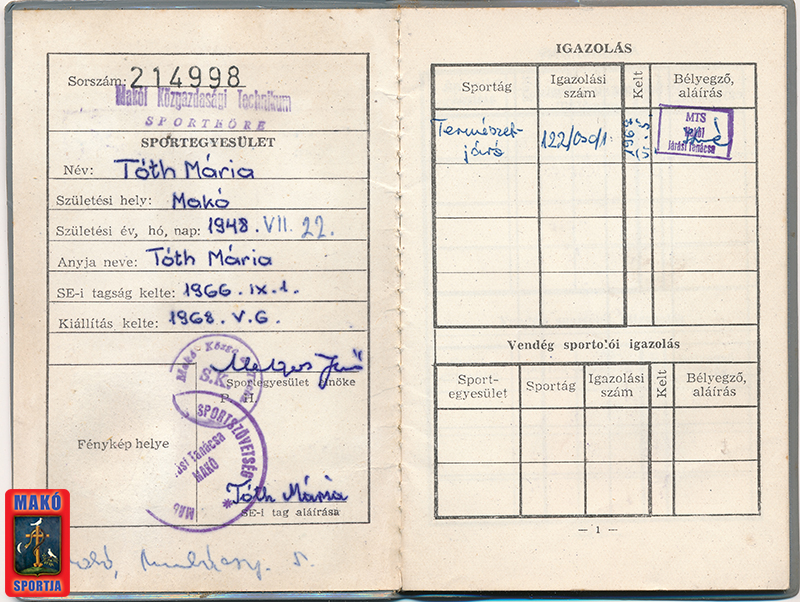 Sorszám: 214998
Makói Közgazdasági Technikum
SPORTKÖRE
SPORTEGYESÜLET
Név: Tóth Mária
Születési hely: Makó
Születési év, hó, nap: 1948. VII. 22.
Anyja neve: Tóth Mária
SE-i tagság kelte: 1966. IX. 1.
Kiállítás kelte: 1968. V. 6.
S.K.
Sportegyesület elnöke
P. H.
Fénykép helye
SPORTSZÖVETSÉG
Tanácsa
MAKÓ
Tóth Mária
SE-i tag aláírása
MAKÓ
SPORTJA
IGAZOLÁS
Sportág
Igazolási szám
Kelt
Bélyegző, aláírás
Természet-
járó
MTS
Makói
Járási Tanácsa
Vendég sportolói igazolás
Sport-
egyesület
Sportág
Igazolási
szám
Kelt
Bélyegző,
aláírás
— 1 —